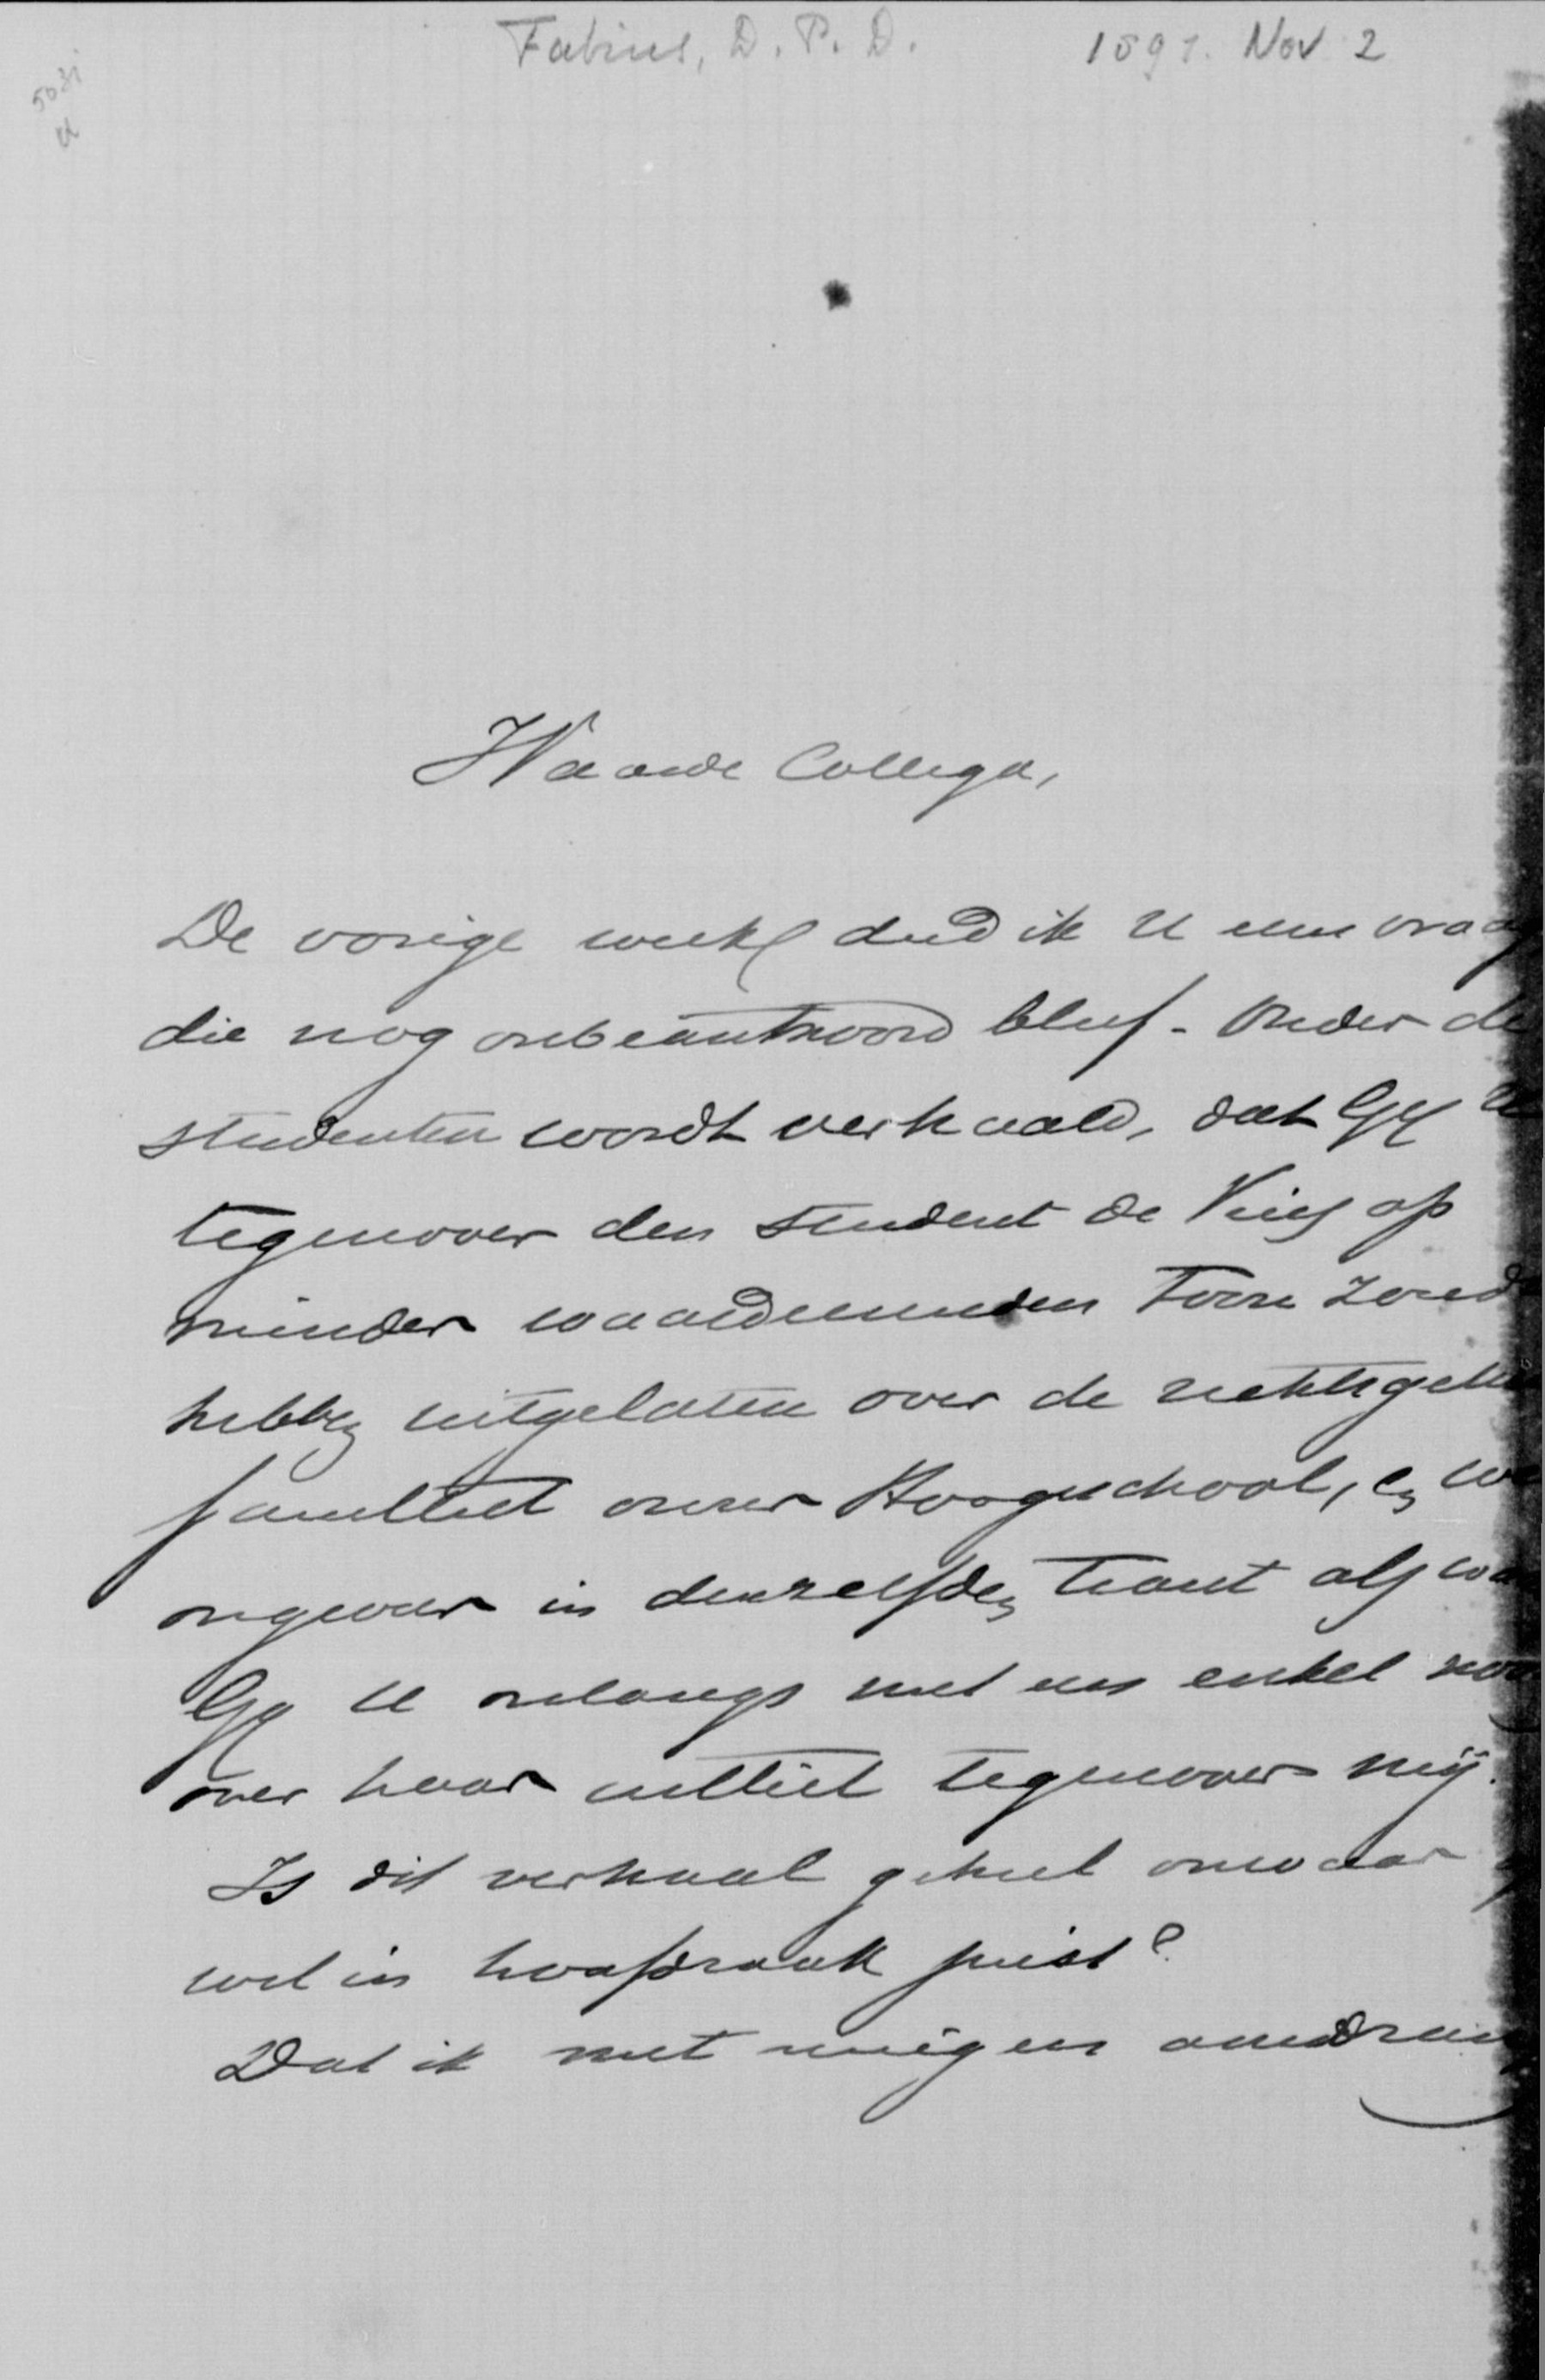 Fabius, D. P. D. 1891. Nov 2
5031
a
Waarde Collega,
De vorige week deed ik U eene vraag
die nog onbeantwoord bleef. Onder de
studenten wordt verhaald, dat Gij U
tegenover den student de Vries op
minder waardeerenden toon zoudt
hebben uitgelaten over de rechtsgel
faculteit onzer Hoogeschool, en we
ongeveer in denzelfden trant als wa
Gij U onlangs met een enkel woo
over haar uitliet tegenover mij.
Is dit verhaal geheel onwaar
wel in hoofdzaak juist?
Dat ik met eenigen aandran